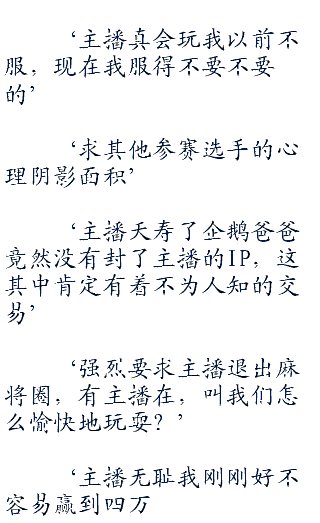 ‘主播真会玩我以前不
服，现在我服得不要不要
的’
‘求其他参赛选手的心
理阴影面积’
‘主播天寿了企鹅爸爸
竟然没有封了主播的IP，这
其中肯定有着不为人知的交
易’
‘强烈要求主播退出麻
将圈，有主播在，叫我们怎
么愉快地玩耍？’
‘主播无耻我刚刚好不
容易赢到四万